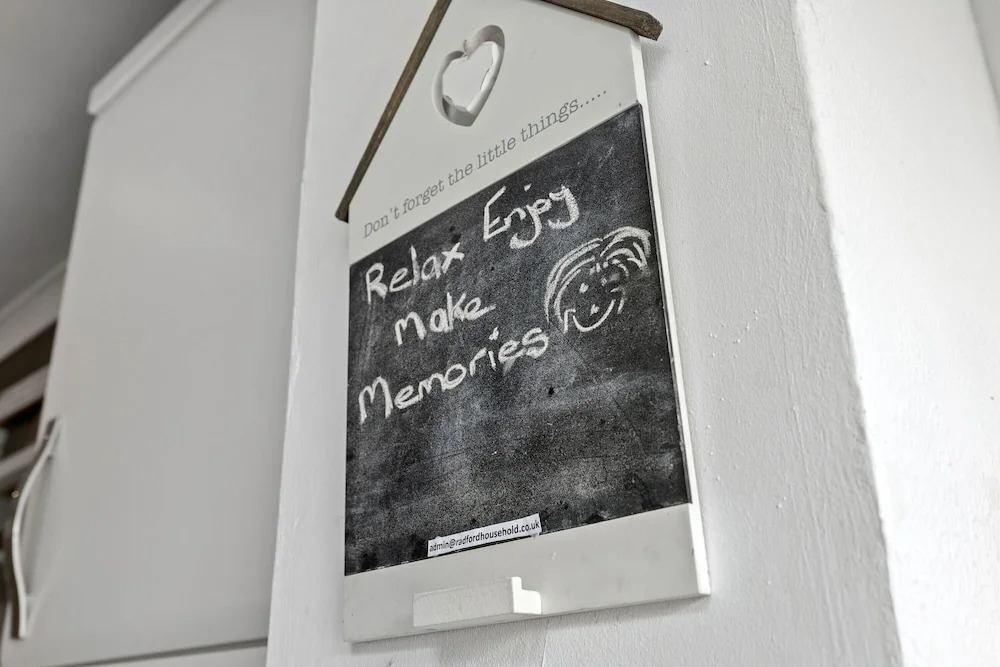 Don't forget the little things.....
Relax Enjoy
Make
Memories
admin@radfordhousehold.co.uk